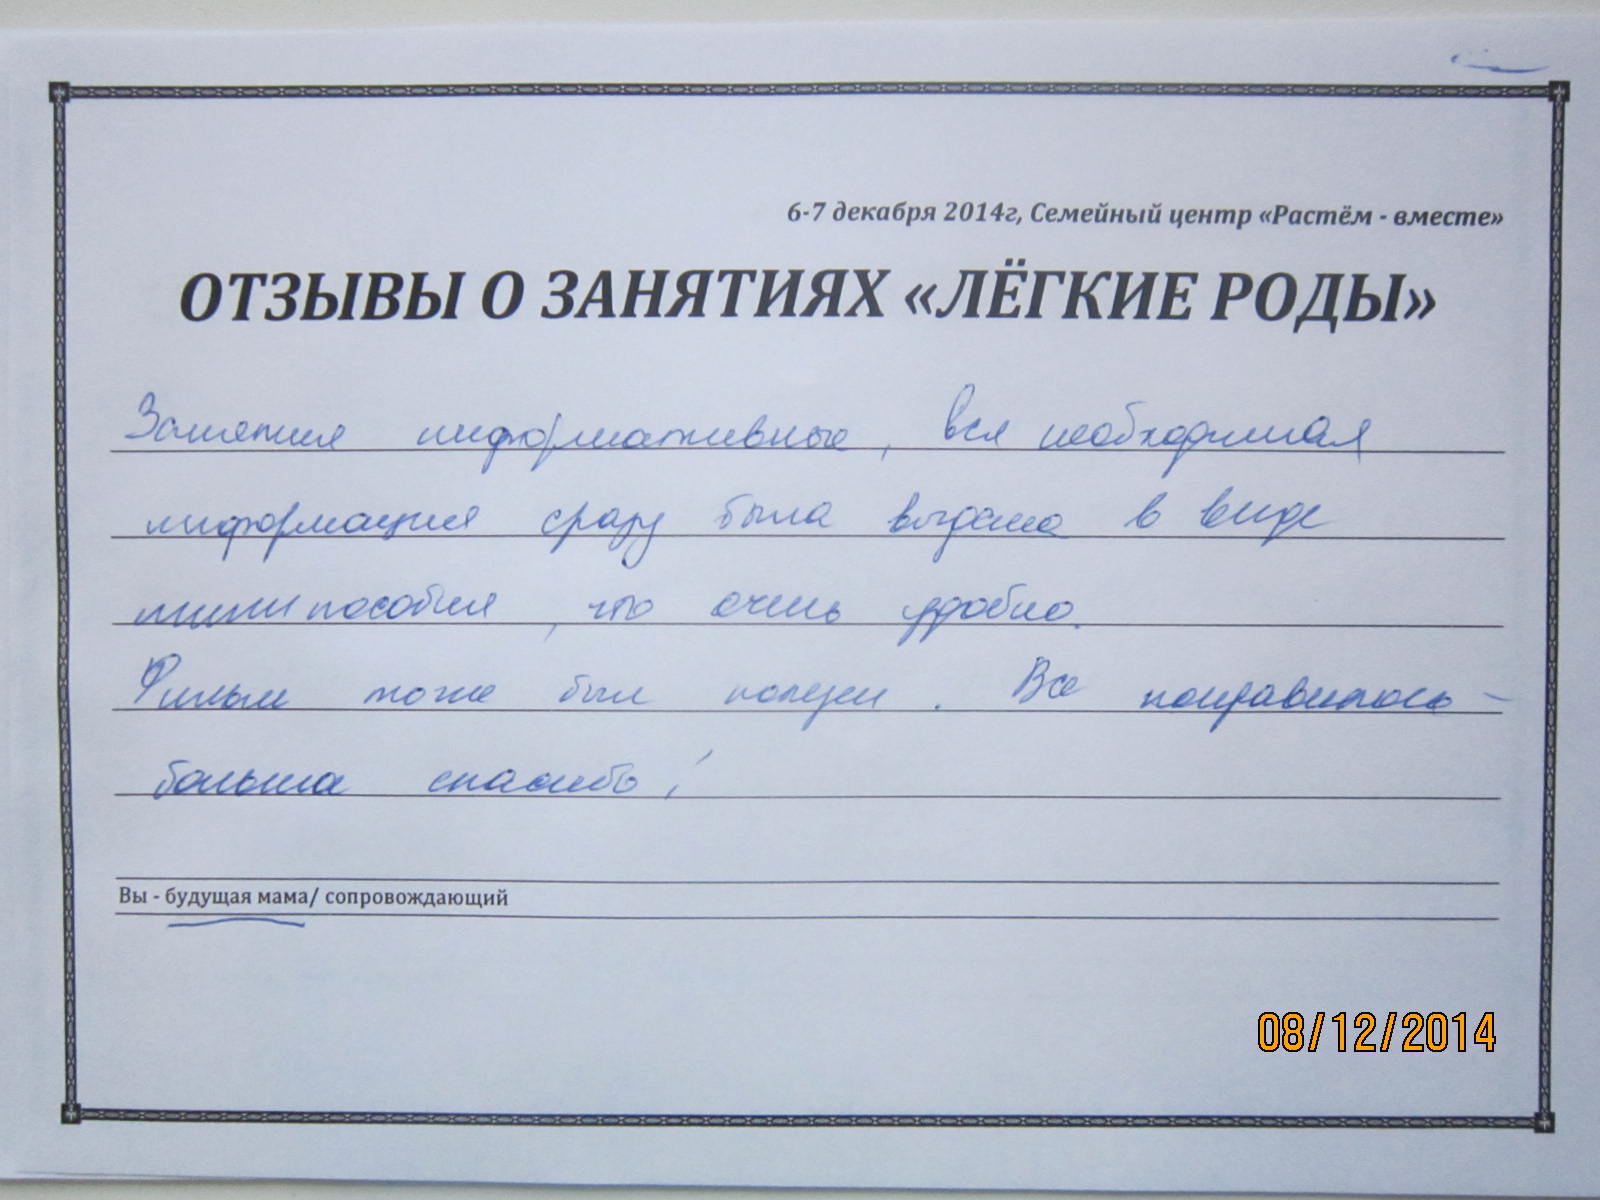 6-7 декабря 2014г, Семейный центр «Растём - вместе»
ОТЗЫВЫ О ЗАНЯТИЯХ «ЛЁГКИЕ РОДЫ»
Занятия информативные, вся необходимая
информация сразу была выдана в виде
мини пособия, что очень удобно.
Фильм тоже был полезен. Все понравилось -
больша спасибо!
Вы - будущая мама/ сопровождающий
08/12/2014